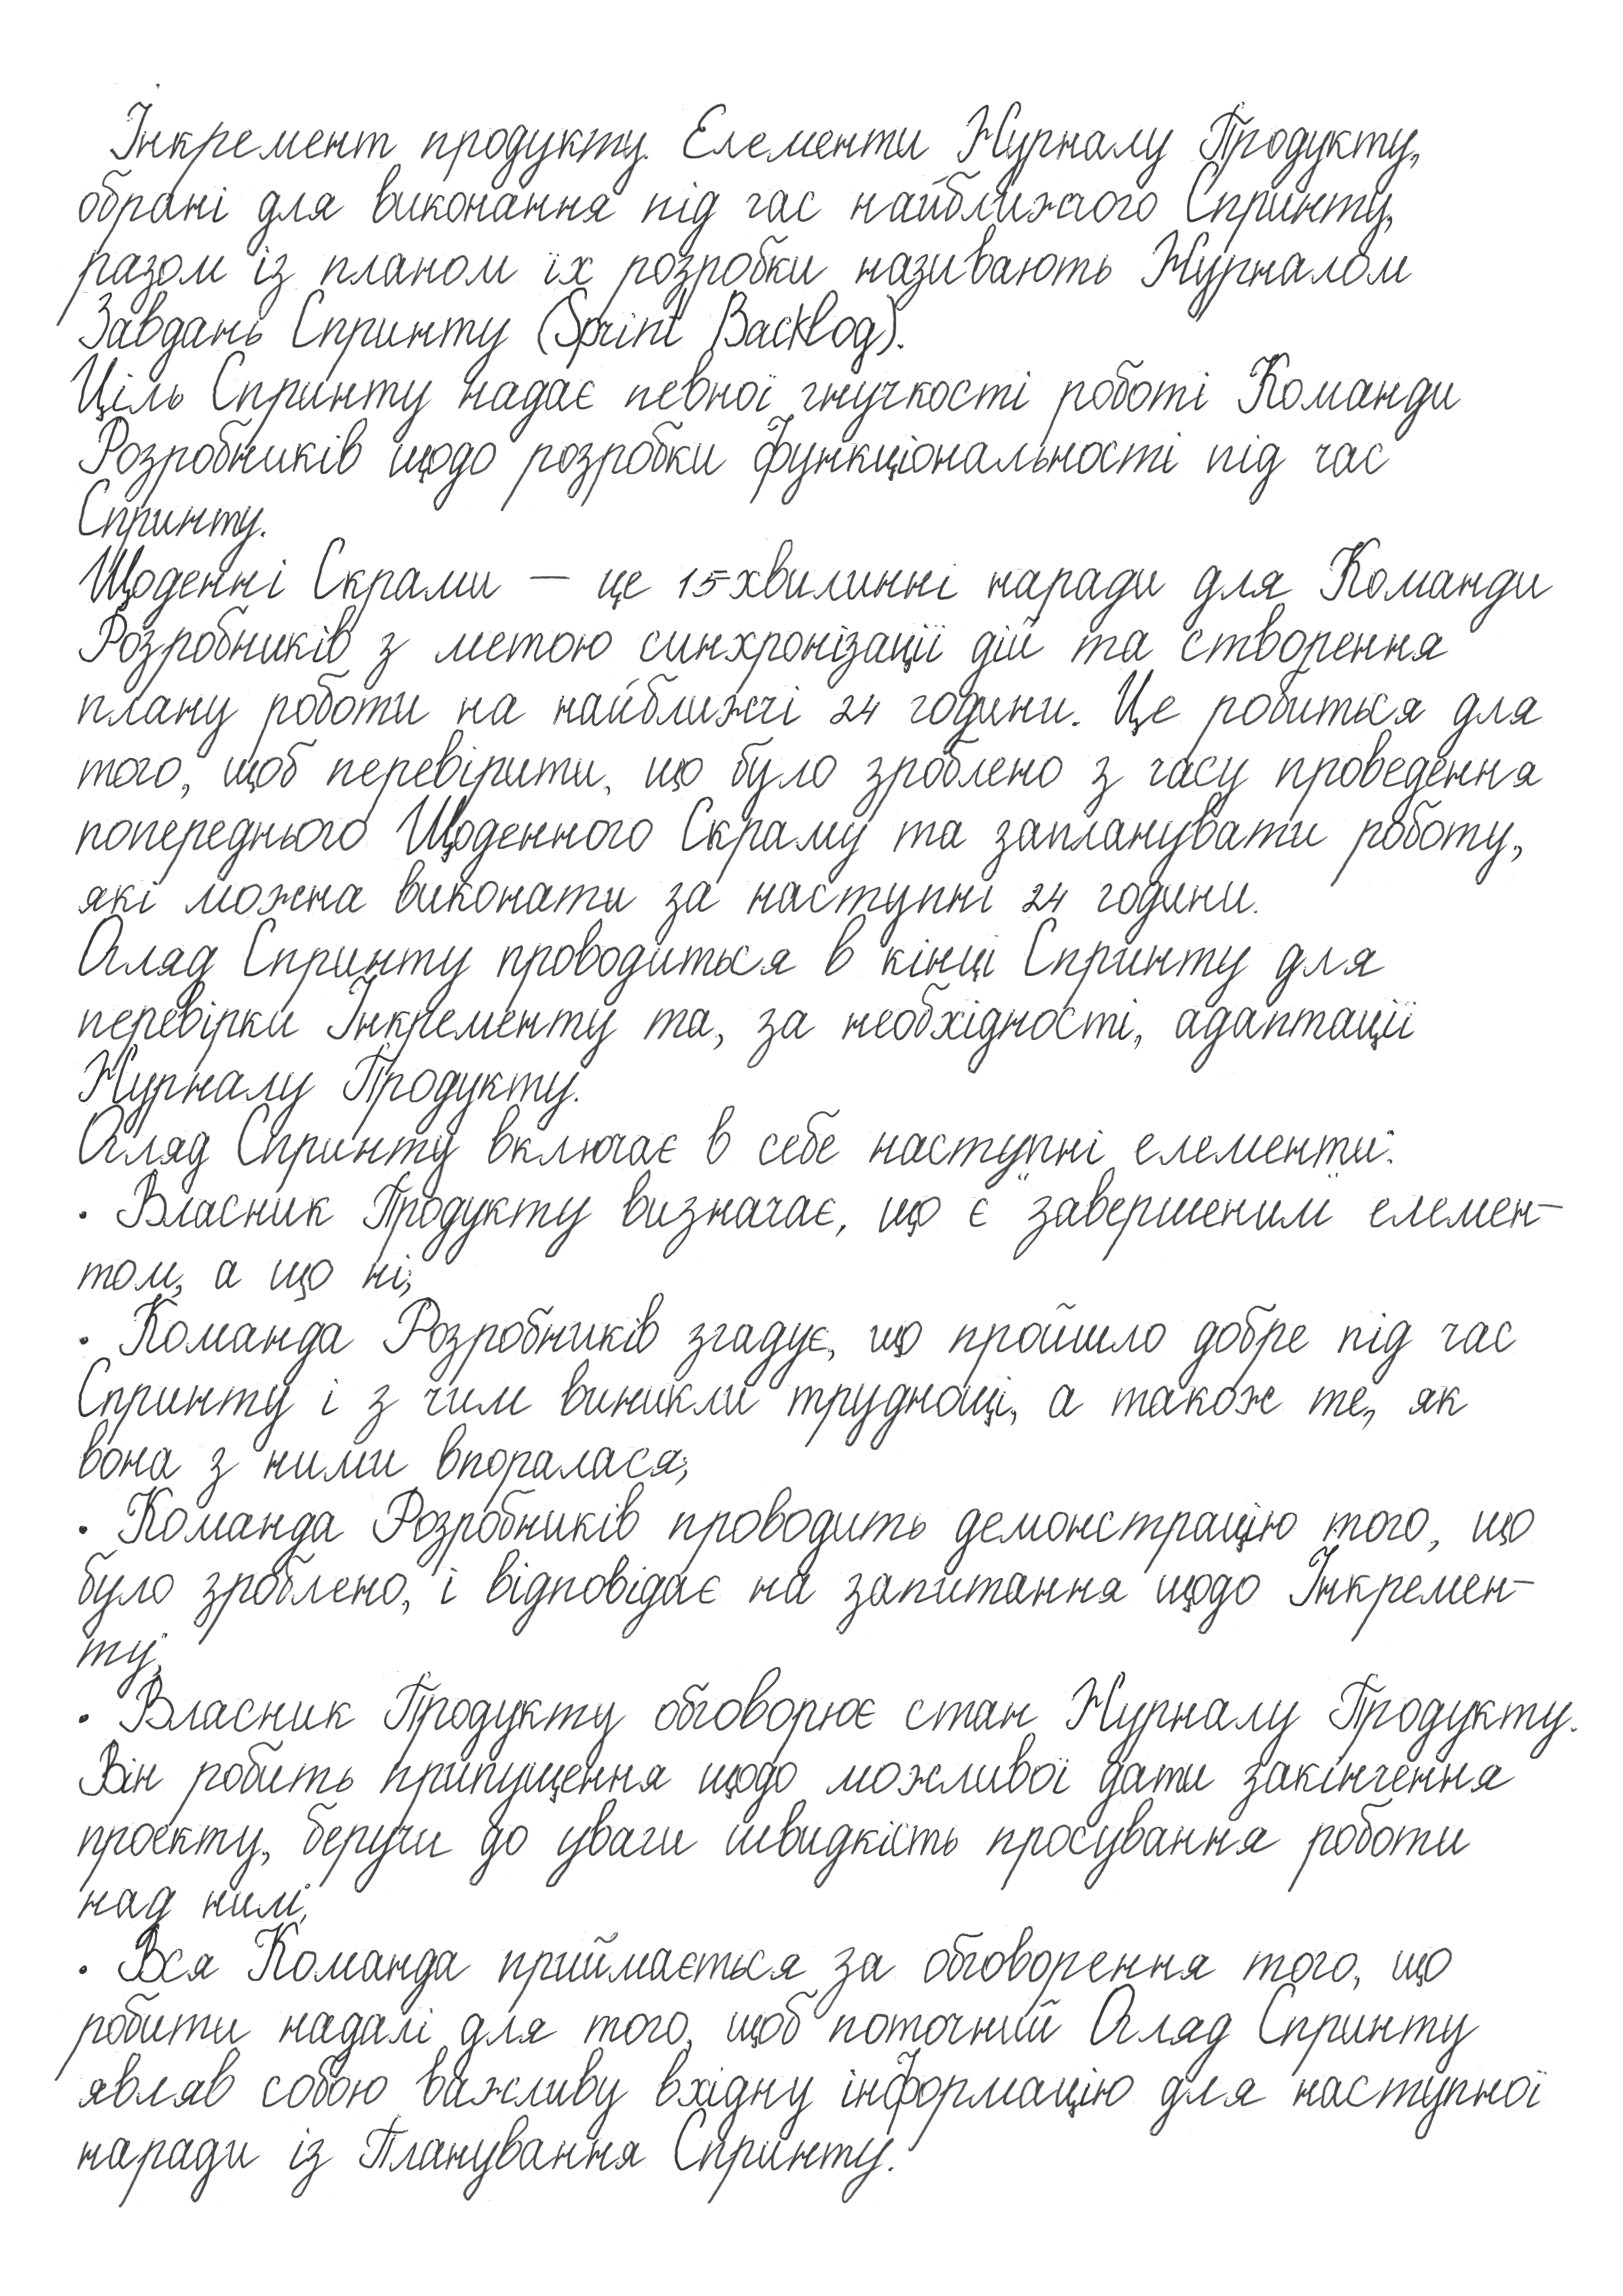 Інкремент продукту. Елементи Журналу Продукту,
обрані для виконання під час найближчого Спринту,
разом із планом їх розробки називають Журналом
Завдань Спринту (Sprint Backlog).
Ціль Спринту надає певної гнучкості роботі Команди
Розробників щодо розробки функціональності під час
Спринту.
Щоденні Скрами — це 15-хвилинні наради для Команди
Розробників з метою синхронізації дій та створення
плану роботи на найближчі 24 години. Це робиться для
того, щоб перевірити, що було зроблено з часу проведення
попереднього Щоденного Скраму та запланувати роботу,
які можна виконати за наступні 24 години.
Огляд Спринту проводиться в кінці Спринту для
перевірки Інкременту та, за необхідності, адаптації
Журналу Продукту.
Огляд Спринту включає в себе наступні елементи:
• Власник Продукту визначає, що є "завершеним" елемен-
том, а що ні;
• Команда Розробників згадує, що пройшло добре під час
Спринту і з чим виникли труднощі, а також те, як
вона з ними впоралася;
• Команда Розробників проводить демонстрацію того, що
було зроблено, і відповідає на запитання щодо Інкремен-
ту;
• Власник Продукту обговорює стан Журналу Продукту.
Він робить припущення щодо можливої дати закінчення
проекту, беручи до уваги швидкість просування роботи
над ним;
• Вся Команда приймається за обговорення того, що
робити надалі для того, щоб поточний Огляд Спринту
являв собою важливу вхідну інформацію для наступної
наради із Планування Спринту.